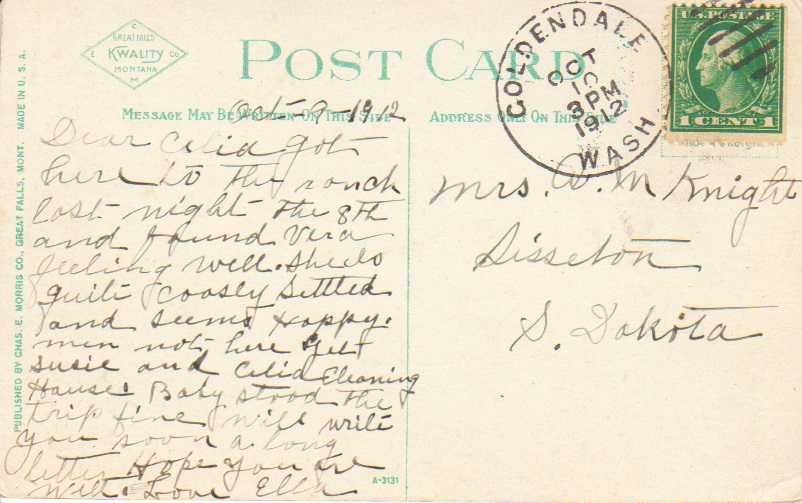 C
GREAT FALLS
C KWALITY CO
MONTANA
M
POST CARD
MESSAGE MAY BE WRITTEN ON THIS SIDE
ADDRESS ONLY ON THIS SIDE
Oct-9-1912
GOLDENDALE
OCT
10
3 PM
1912
WASH
U.S. POSTAGE
1 CENT 1
Dear Celia got
here to the ranch
last night the 8th
and found Vera
feeling well. She is
quite coosly settled
and seems Happy.
men not here yet
Susie and Celia Cleaning
House. Baby stood the
trip fine will write
you soon a long
letter Hope you are
well. Love Ella
Mrs. D. M Knight
Sisseton
S. Dakota
PUBLISHED BY CHAS. E. MORRIS CO., GREAT FALLS, MONT. MADE IN U. S. A.
A-3131